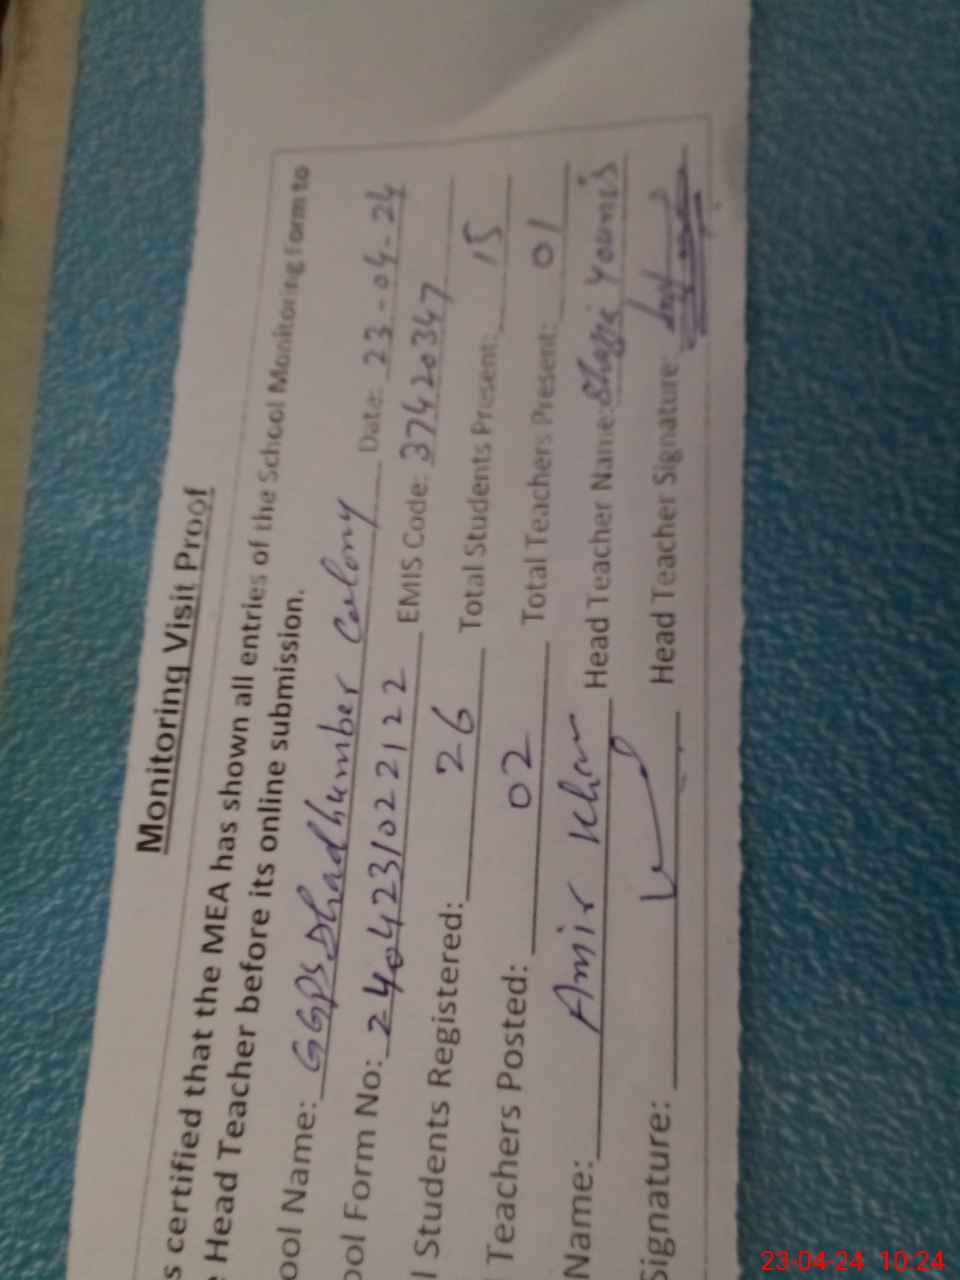 Monitoring Visit Proof
s certified that the MEA has shown all entries of the School Monitoring Form to
e Head Teacher before its online submission.
ool Name: GGPS Dhadhumber Colony Date: 23-04-24
ool Form No: 2404231022122 EMIS Code: 37420347
l Students Registered: 26 Total Students Present: 15
Teachers Posted: 02 Total Teachers Present: 01
Name: Amir Khan Head Teacher Name: Younis
Signature: Head Teacher Signature:
23-04-24 10:24